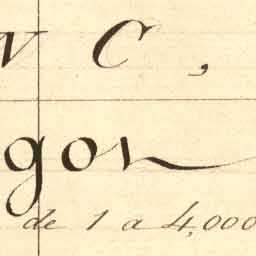 C,
gon
de 1 a 4,000